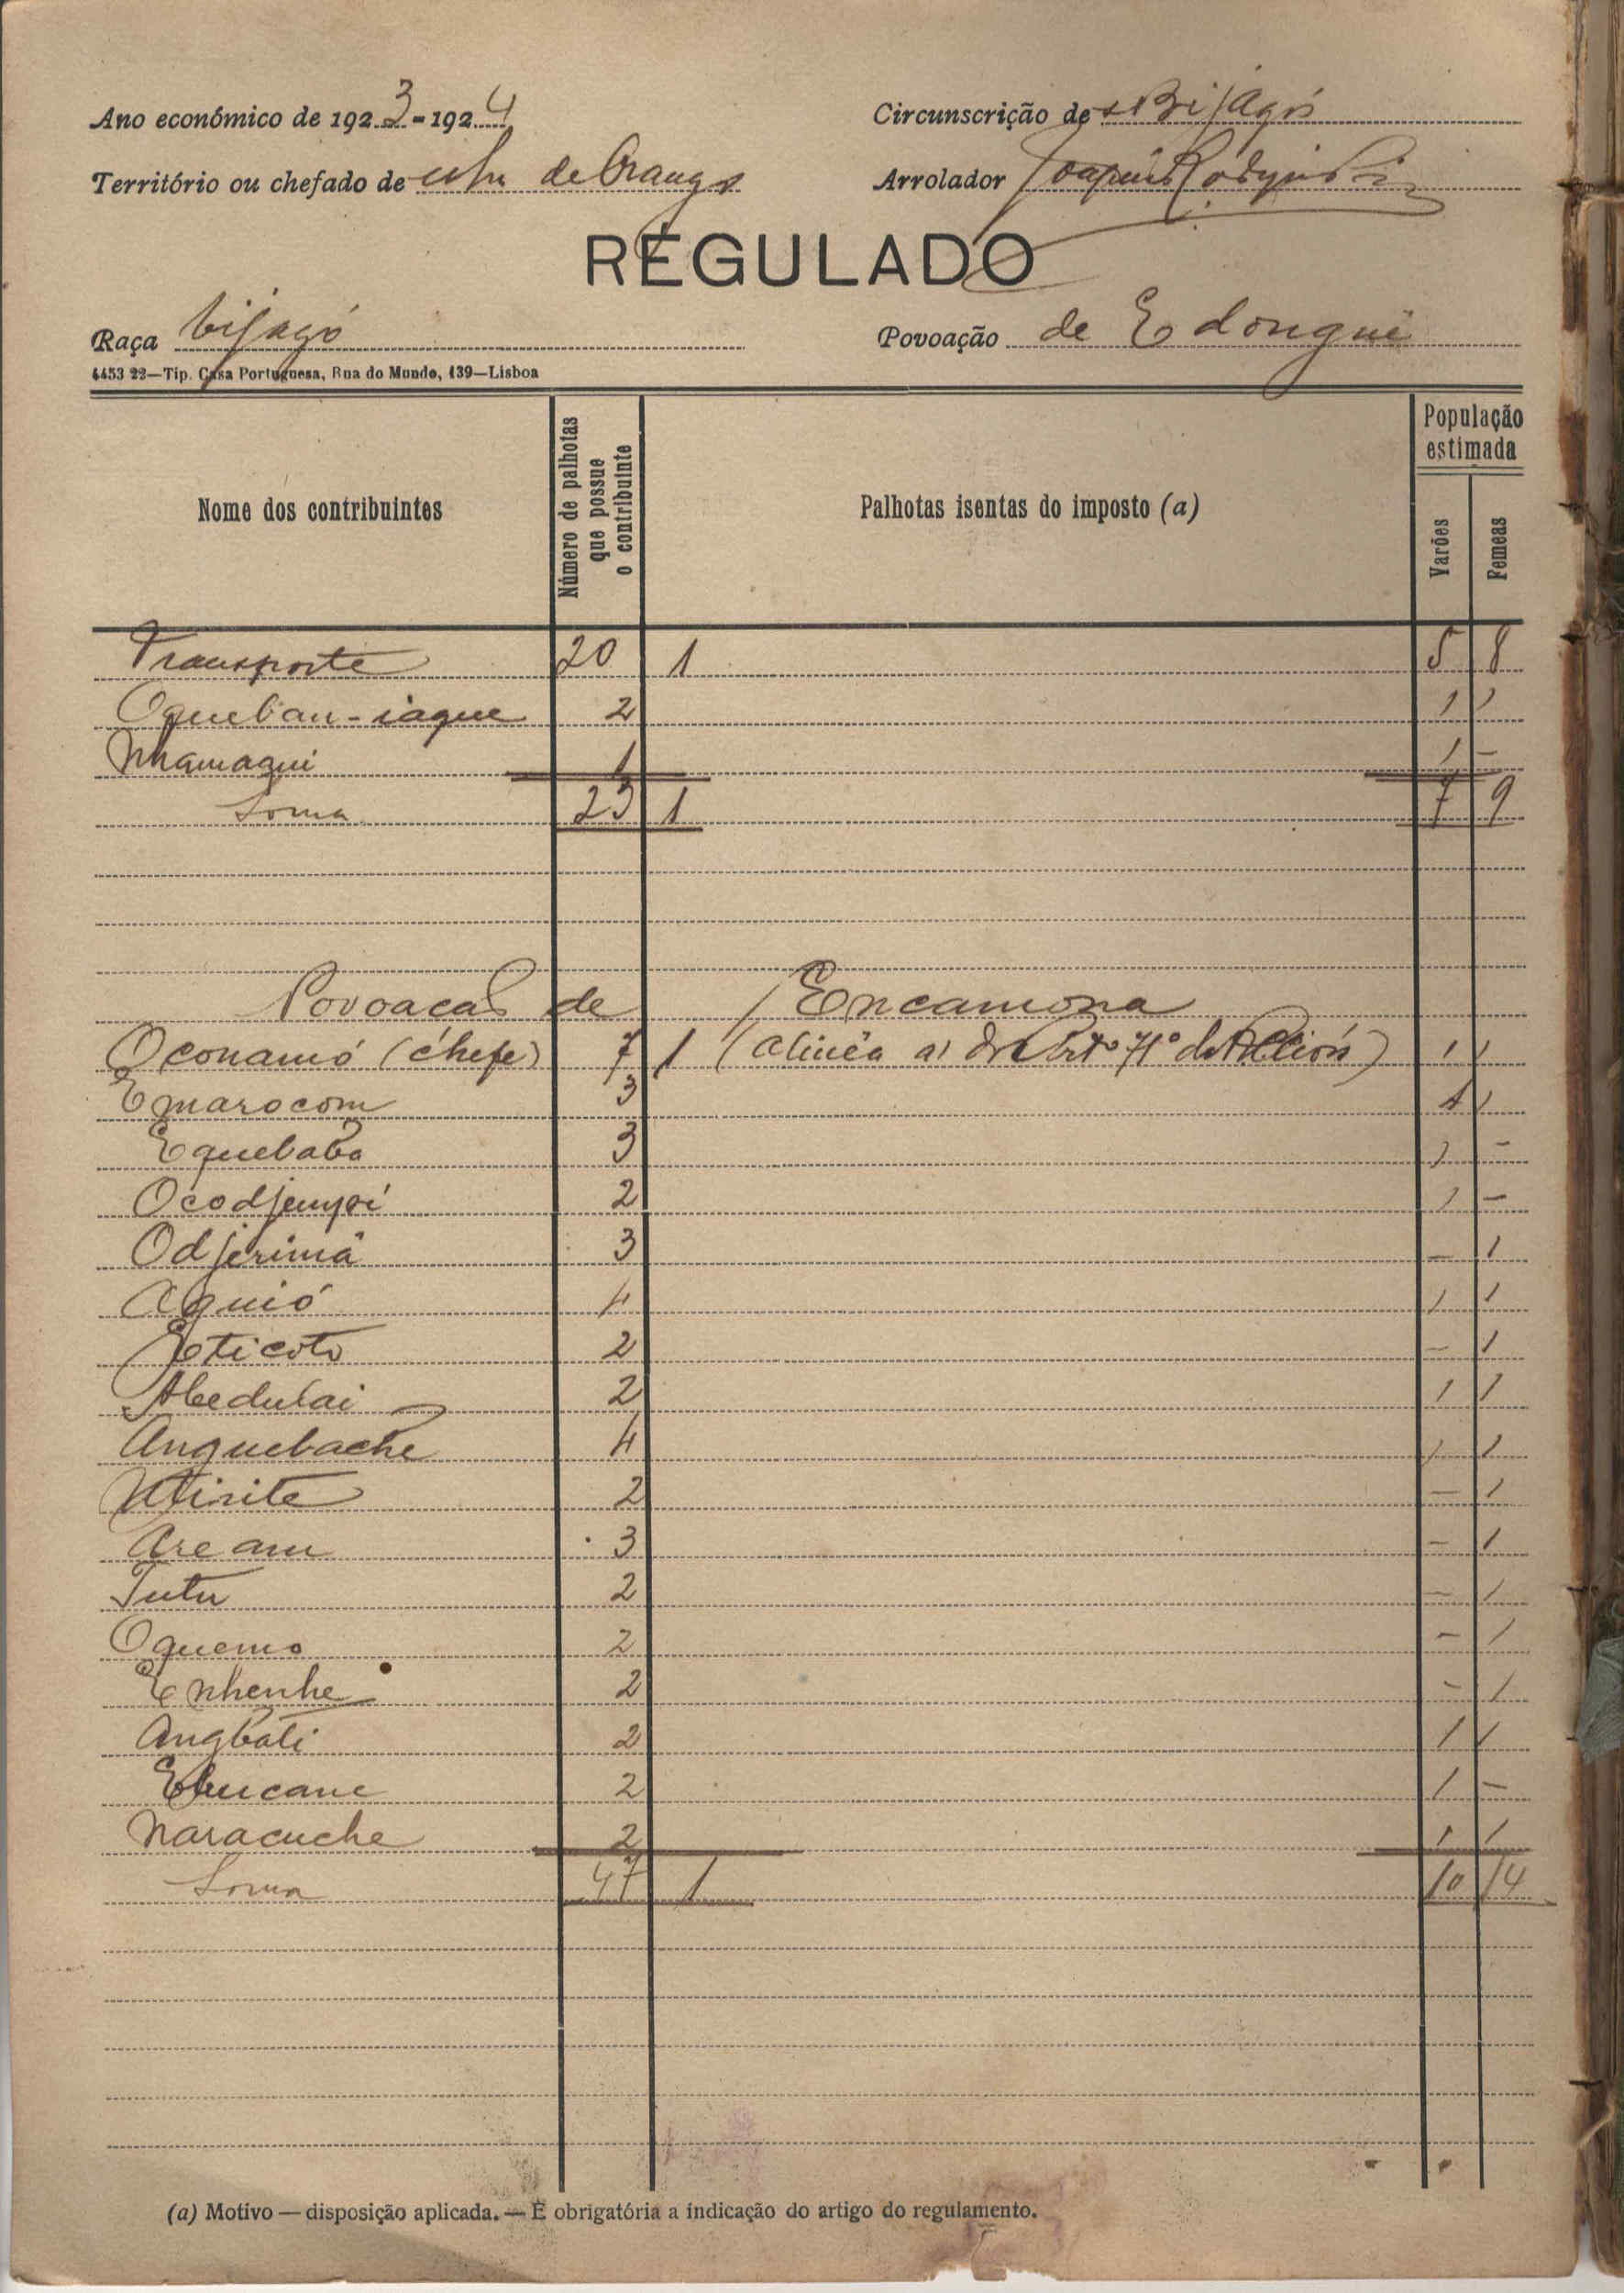 Ano económico de 1923-1924 Circunscrição de Bijagós
Território ou chefado de de Orango Arrolador Joaquim
REGULADO
Raça bijagó Povoação de Edongui
4453 22—Tip. Casa Portuguesa, Rua do Mundo, 139—Lisboa
Nome dos contribuintes Número de palhotas que possue o contribuinte Palhotas isentas do imposto (a) População estimada Varões Femeas
Transporte 20 1 5 8
Oqueban-iaque 2 1 1
Nhamaqui 1 1 -
Soma 23 1 7 9
Povoacão de Encamona
Oconamó (chefe) 7 1 (alinêa a) do Artº 71º 1 1
Emarocom 3 1 1
Equebaba 3 1 -
Ocodjempoi 2 1 -
Odjerimá 3 - 1
Aquió 4 1 1
Eticoto 2 - 1
Abedulai 2 1 1
Anquebache 4 1 1
Ntirite 2 - 1
Aream 3 - 1
Tutu 2 - 1
Oquemo 2 - 1
Enhenhe 2 - 1
Angbali 2 1 1
Ebucane 2 1 -
Naracuche 2 1 1
Soma 47 1 10 14
(a) Motivo — disposição aplicada. — É obrigatória a indicação do artigo do regulamento.